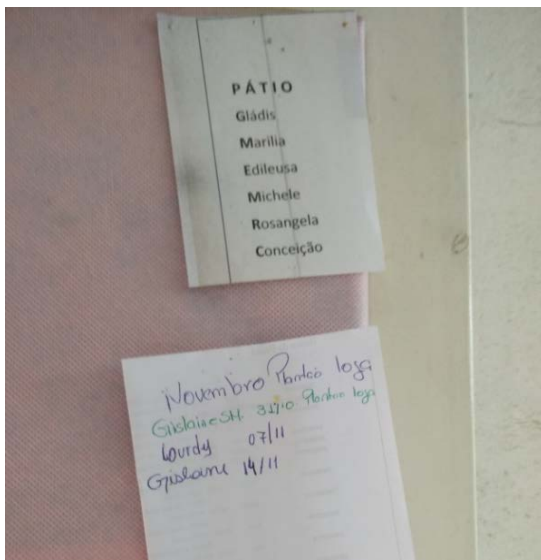 PÁTIO
Gládis
Marilia
Edileusa
Michele
Rosangela
Conceição
Novembro Plantão loja
Gislaine SH Plantao loja
Lourdy 07/11
Gislaine 14/11